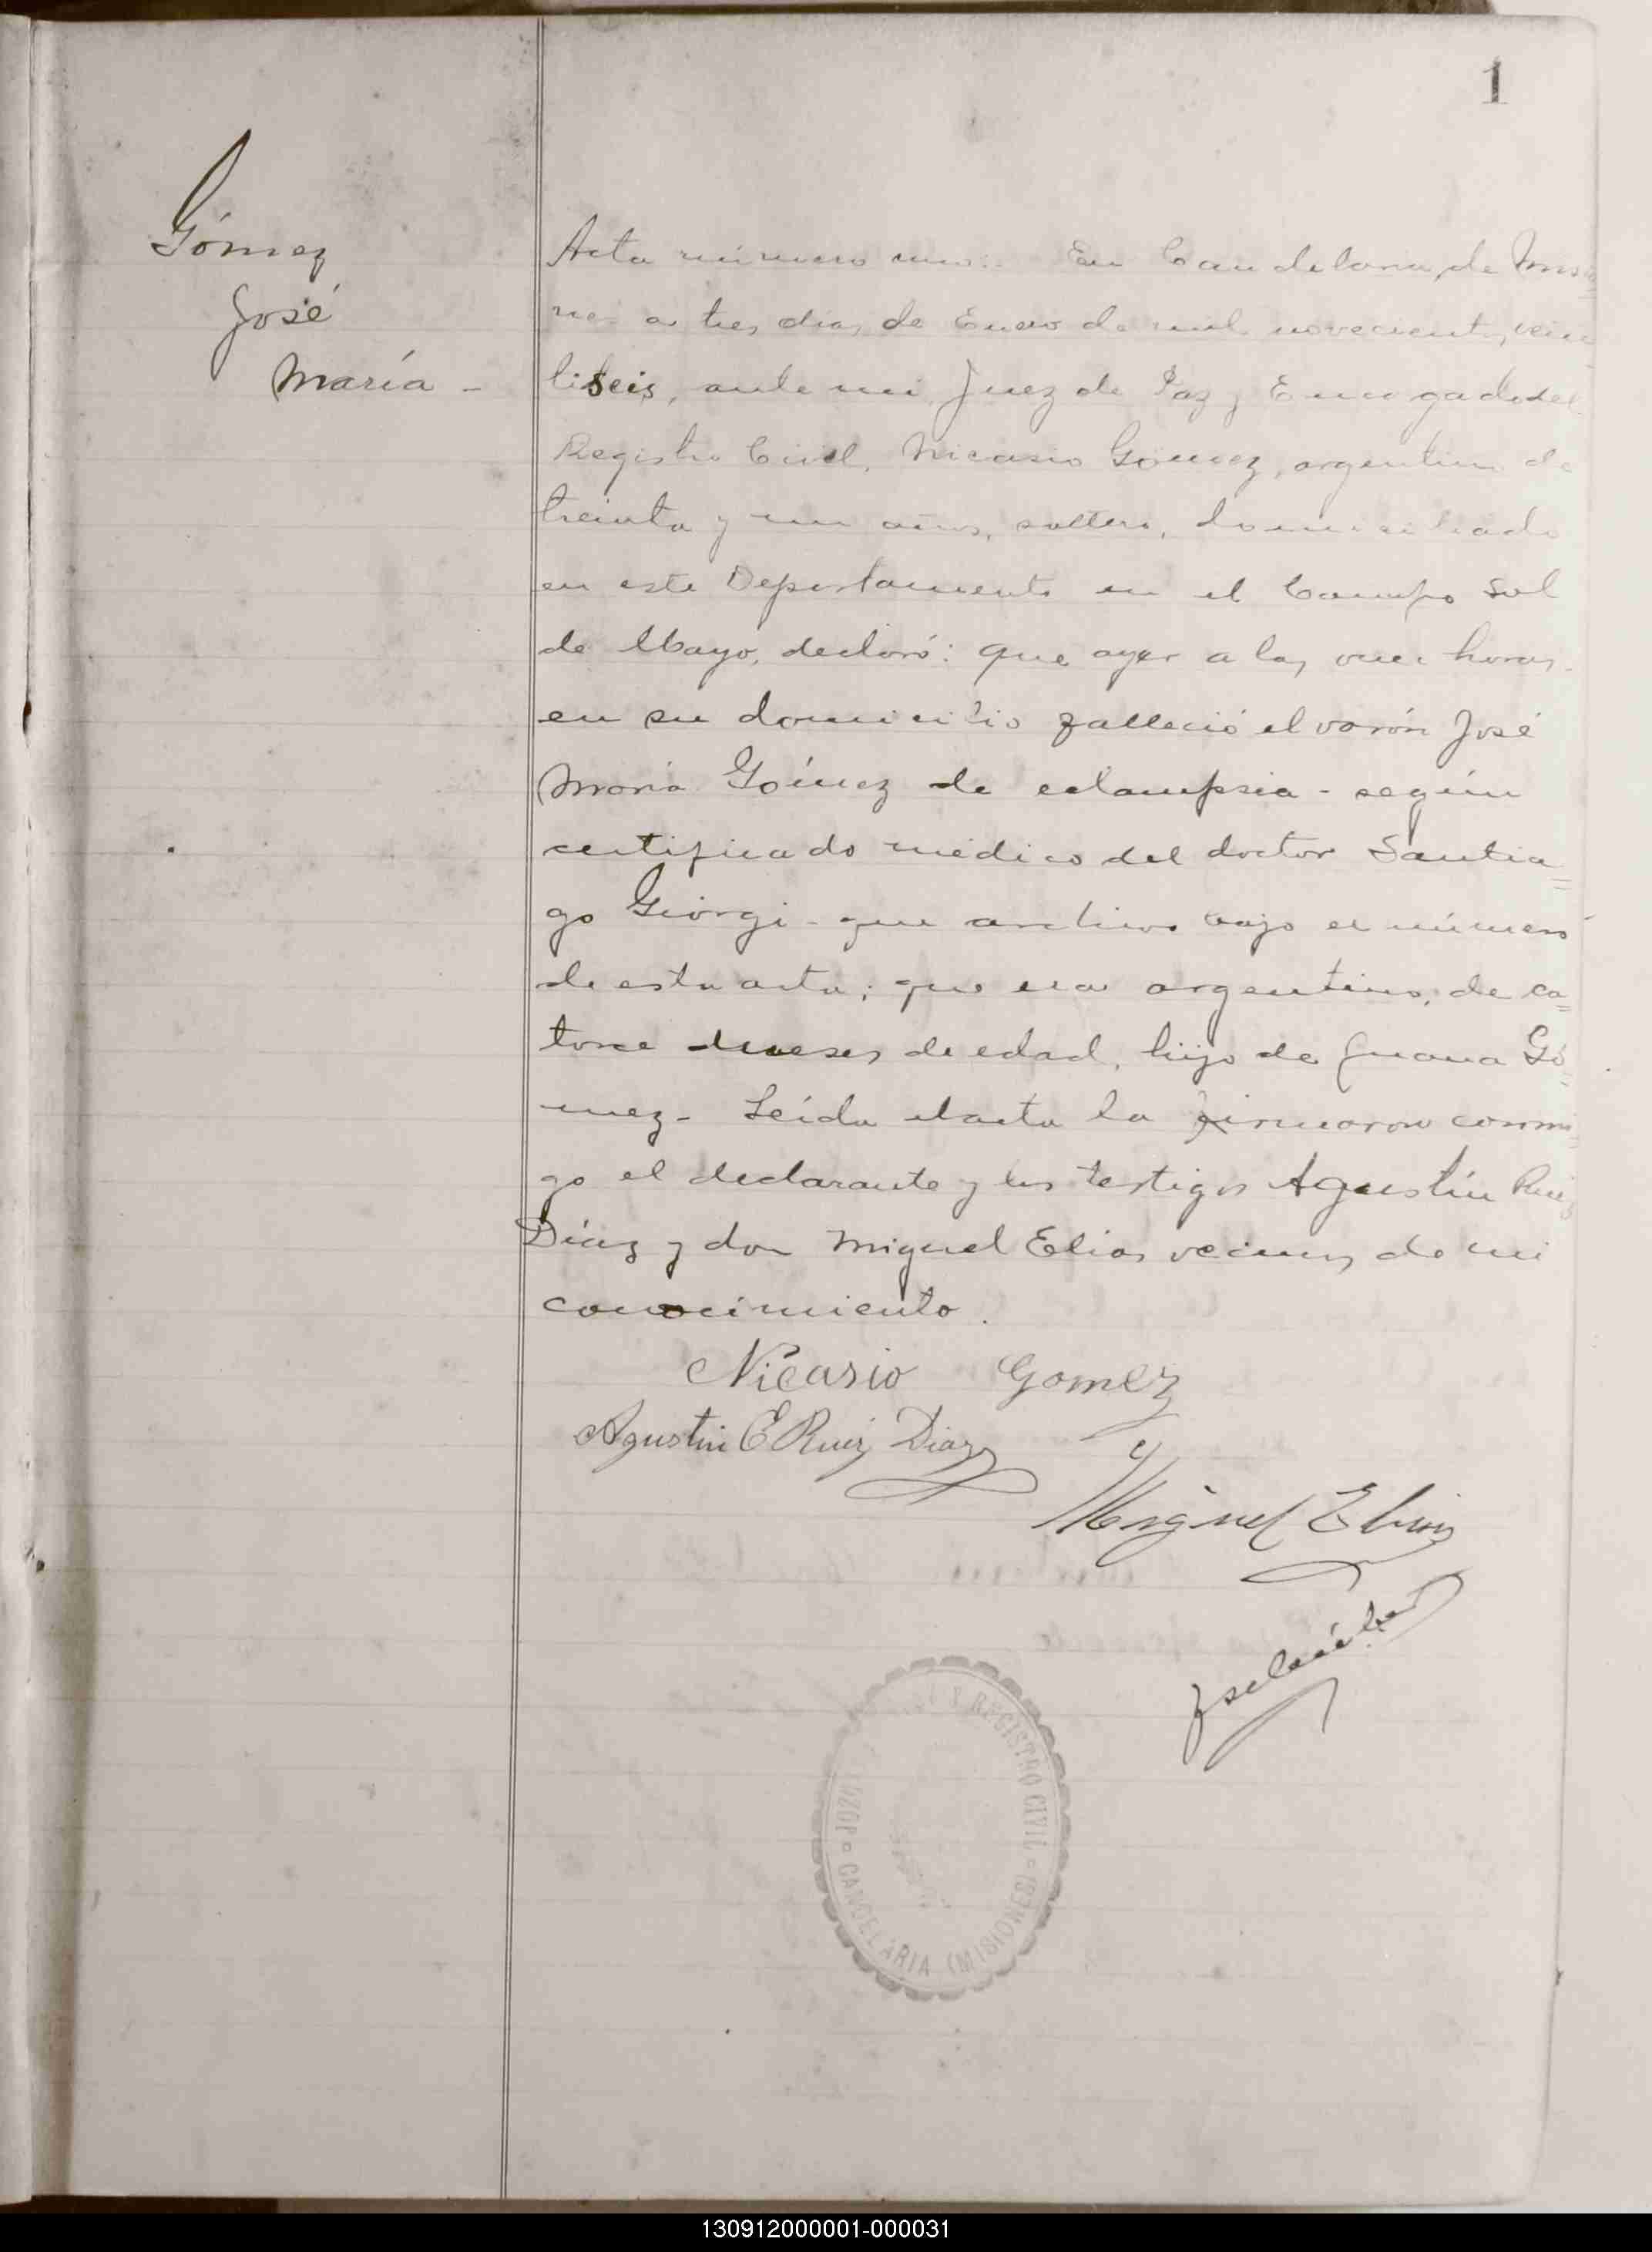 1
Gómez
José
María -
Acta número uno:. En Candelaria, de Misio=
nes a tres dias de Enero de mil novecientos vein
tiseis, ante mi Juez de Paz y Encargado del
Registro Civil, Nicasio Gómez, argentino de
treinta y un años, soltero, domiciliado
en este Departamento en el Campo Sol
de Mayo, declaró: que ayer a las once horas
en su domicilio falleció el varón José
María Gómez de eclampsia - según
certificado médico del doctor Santia=
go Giorgi - que archivo bajo el número
de esta acta; que era argentino, de ca=
torce meses de edad, hijo de Juana Gó=
mez - Leída el acta la firmaron conmi=
go el declarante y los testigos Agustín Ruiz
Díaz y don Miguel Elias vecinos de mi
conocimiento.
Nicasio Gomez
Agustin E Ruiz Diaz
Miguel Elias
Y REGISTRO CIVIL = (MISIONES)
JUZGADO = CANDELARIA
130912000001-000031